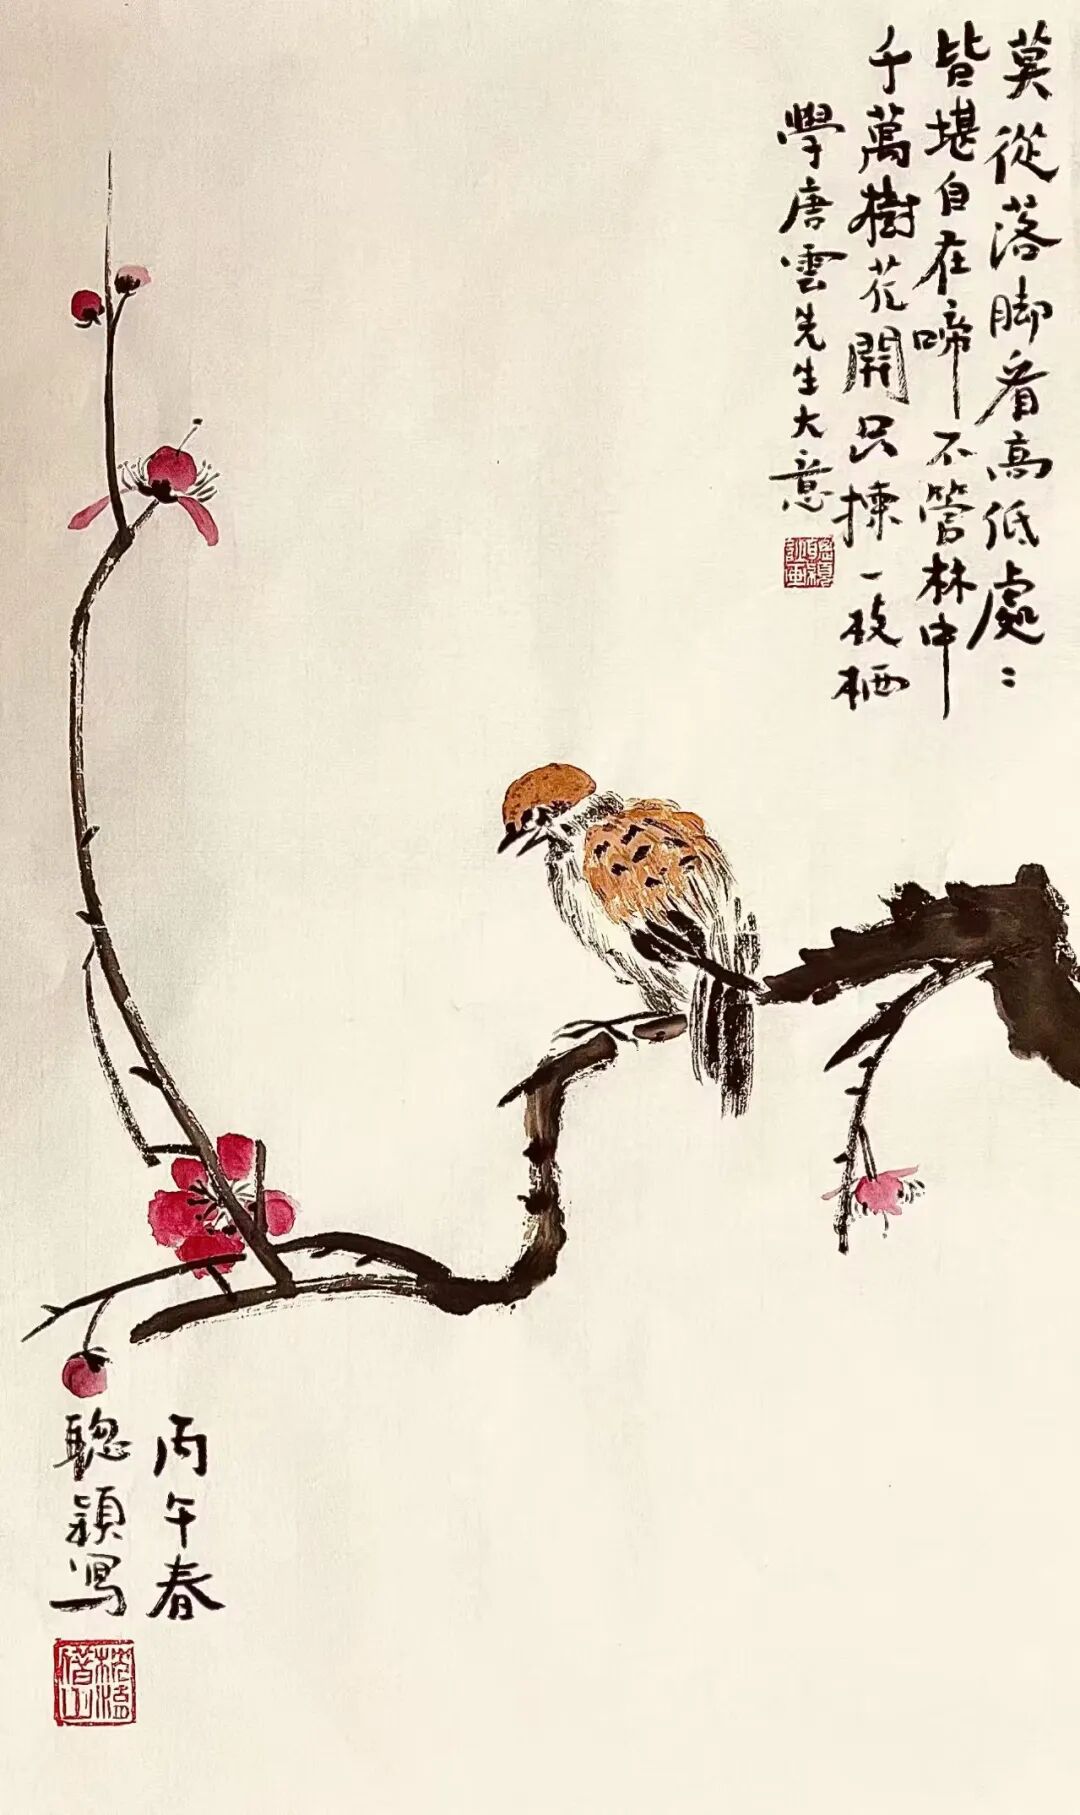 莫從落脚看高低處〻
皆堪自在啼不管林中
千萬樹花開只揀一枝栖
學唐雲先生大意
丙午春
聰穎寫